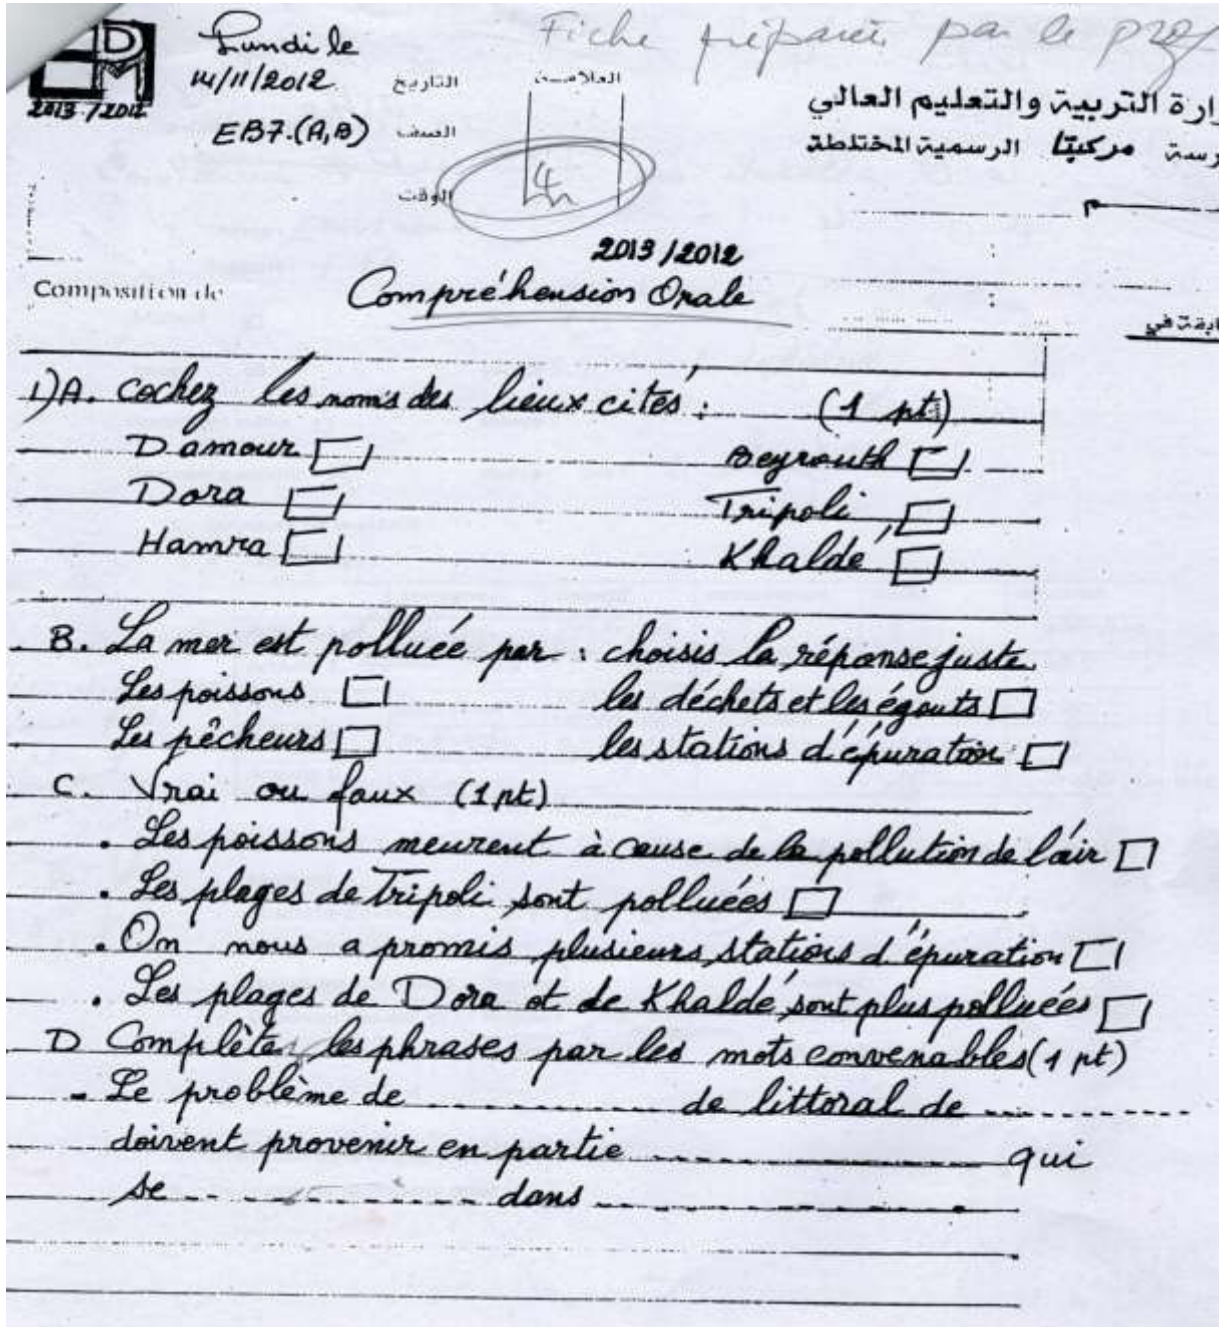 Fiche préparée par le prof
Lundi le
14/11/2012
التاريخ
العلامة
2013/2012
وزارة التربية والتعليم العالي
EB7.(A,B)
الصف
مدرسة مركبتا الرسمية المختلطة
4
الوقت
2013/2012
Composition de
Compréhension Orale
مسابقة في
1)A. cochez les noms des lieux cités : (1 pt)
Damour Beyrouth
Dora Tripoli
Hamra Khaldé
B. La mer est polluée par : choisis la réponse juste.
Les poissons les déchets et les égouts
Les pêcheurs les stations d'épuration
C. Vrai ou faux (1pt)
. Les poissons meurent à cause de la pollution de l'air
. Les plages de Tripoli sont polluées
. On nous a promis plusieurs stations d'épuration
. Les plages de Dora et de Khaldé sont plus polluées
D Complète les phrases par les mots convenables (1 pt)
- Le problème de ............ de littoral de ............
doivent provenir en partie ............ qui
se ............ dans ............ .